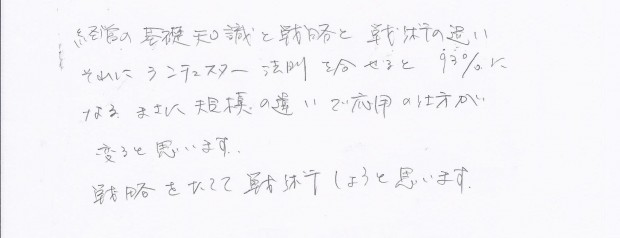 経営の基礎知識と戦略と戦術の違い
それにランチェスター法則を合せると93%に
なる まさに規模の違いで応用の仕方が
変ると思います。
戦略をたてて戦術しようと思います。